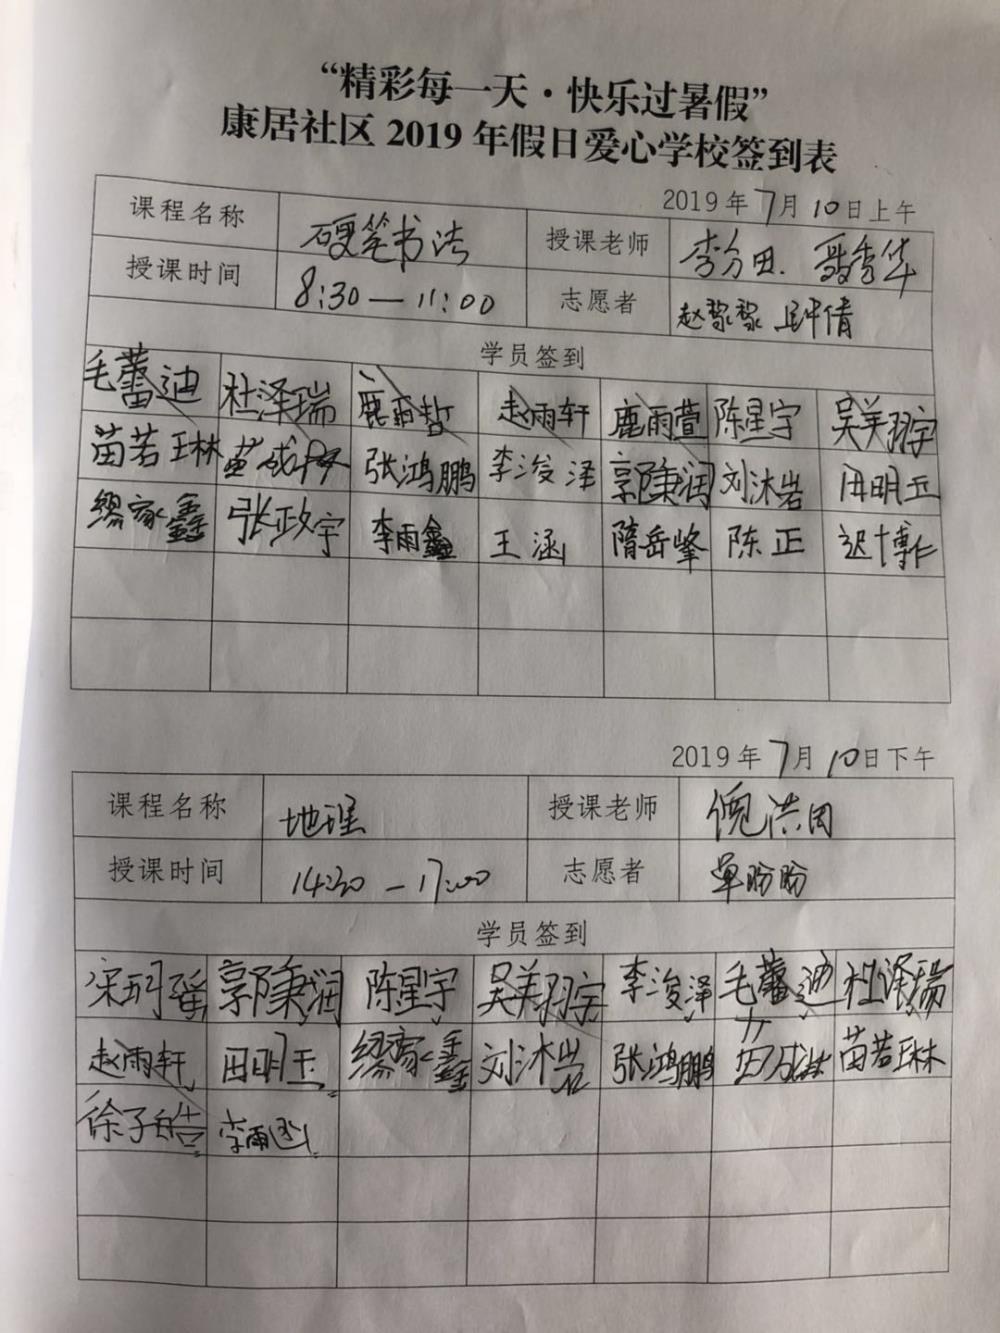 “精彩每一天·快乐过暑假”
康居社区 2019 年假日爱心学校签到表
2019 年 7 月 10 日上午
课程名称 硬笔书法 授课老师 李分田. 聂秀华
授课时间 8:30—11:00 志愿者 赵黎黎 倩
学员签到
毛蕾迪 杜泽瑞 鹿雨哲 赵雨轩 鹿雨萱 陈星宇 吴美羽宇
苗若琳 张鸿鹏 李浚泽 郭秉润 刘沐岩 田明玉
缪家鑫 张政宇 李雨鑫 王涵 隋岳峰 陈正 迟博仁
2019 年 7 月 10 日下午
课程名称 地理 授课老师 倪洪田
授课时间 14:30—17:00 志愿者 单盼盼
学员签到
宋珂瑶 郭秉润 陈星宇 吴美羽宇 李浚泽 毛蕾迪 杜泽瑞
赵雨轩 田明玉 缪家鑫 刘沐岩 张鸿鹏 苗若琳
徐子皓 李雨